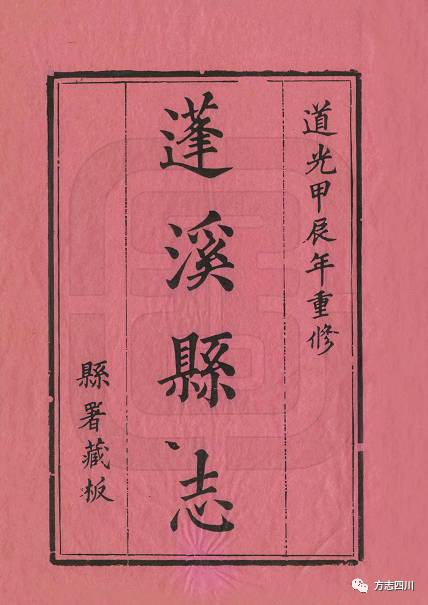 道光甲辰年重修
蓬溪縣志
縣署藏板
方志四川